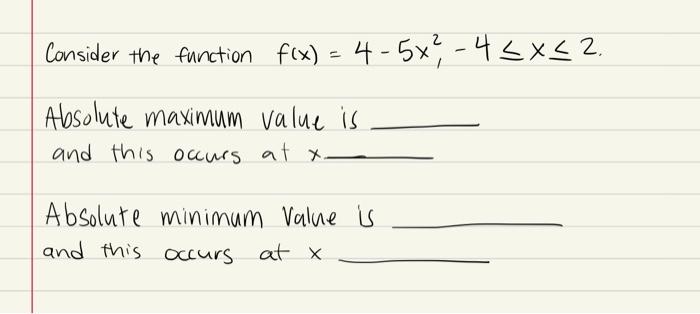 Consider the function f(x) = 4 - 5x², -4 ≤ x ≤ 2.
Absolute maximum value is ______
and this occurs at x ______
Absolute minimum value is ______
and this occurs at x ______